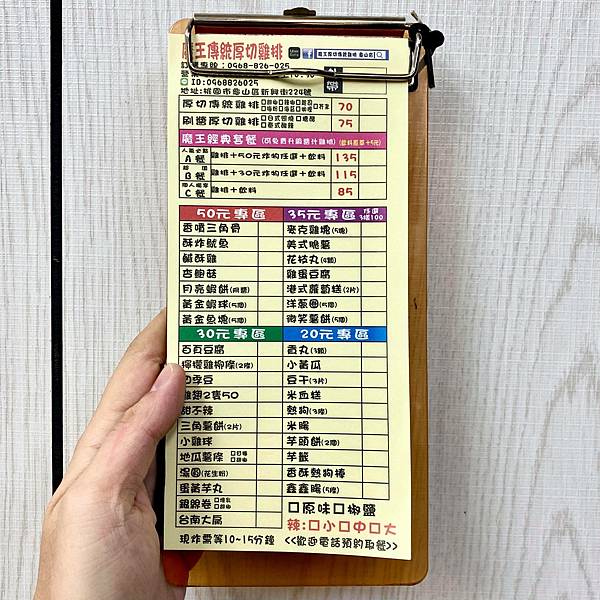 魔王傳統厚切雞排
魔王傳統厚切雞排 龜山店
訂購專線:0968-826-025
ID:0968826025
地址:桃園市龜山區新興街224號
厚切傳統雞排 70
刷醬厚切雞排 75
魔王經典套餐 (可免費升級醬汁雞排)
A餐 雞排+50元炸物任選+飲料 135
B餐 雞排+30元炸物任選+飲料 115
C餐 雞排+飲料 85
50元專區
香嘴三角骨
酥炸魷魚
鹹酥雞
杏鮑菇
月亮蝦餅
黃金蝦球(5個)
黃金魚塊(5個)
35元專區 任選3樣100
麥克雞塊(5塊)
美式脆薯
花枝丸(4顆)
雞蛋豆腐
港式蘿蔔糕(2片)
洋蔥圈(5個)
微笑薯餅(5個)
30元專區
百頁豆腐
檸檬雞柳條(2條)
四季豆
雞翅2隻50
甜不辣
三角薯餅(2片)
小雞球
地瓜薯條
湯圓(花生粉)
蛋黃芋丸
銀絲卷
台南大扁
20元專區
貢丸(3顆)
小黃瓜
豆干(3片)
米血糕
熱狗(3條)
米腸
芋頭餅(2個)
芋籤
香酥熱狗棒
鑫鑫腸(5條)
□原味□椒鹽
辣:□小□中□大
現炸需等10~15分鐘 <<歡迎電話預約取餐>>